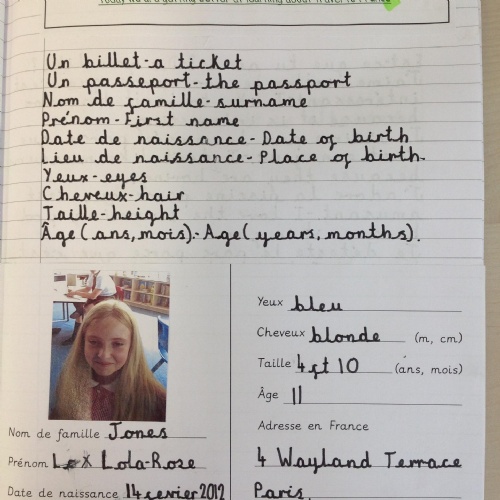 Today we are getting better at learning about travel to France
Un billet-a ticket
Un passeport-the passport
Nom de famille-surname
Prénom-First name
Date de naissance-Date of birth
Lieu de naissance-Place of birth.
Yeux-eyes
Cheveux-hair
Taille-height
Âge(ans,mois).-Age(years,months).
Nom de famille Jones
Prénom Lola-Rose
Date de naissance 14 fevier 2012
Yeux bleu
Cheveux blonde (m, cm)
Taille 4ft 10 (ans, mois)
Âge 11
Adresse en France
4 Wayland Terrace
Paris.